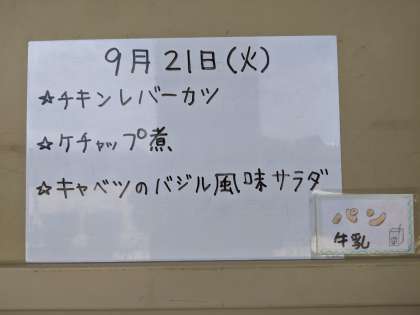 9月21日(火)
☆チキンレバーカツ
☆ケチャップ煮
☆キャベツのバジル風味サラダ
パン
牛乳